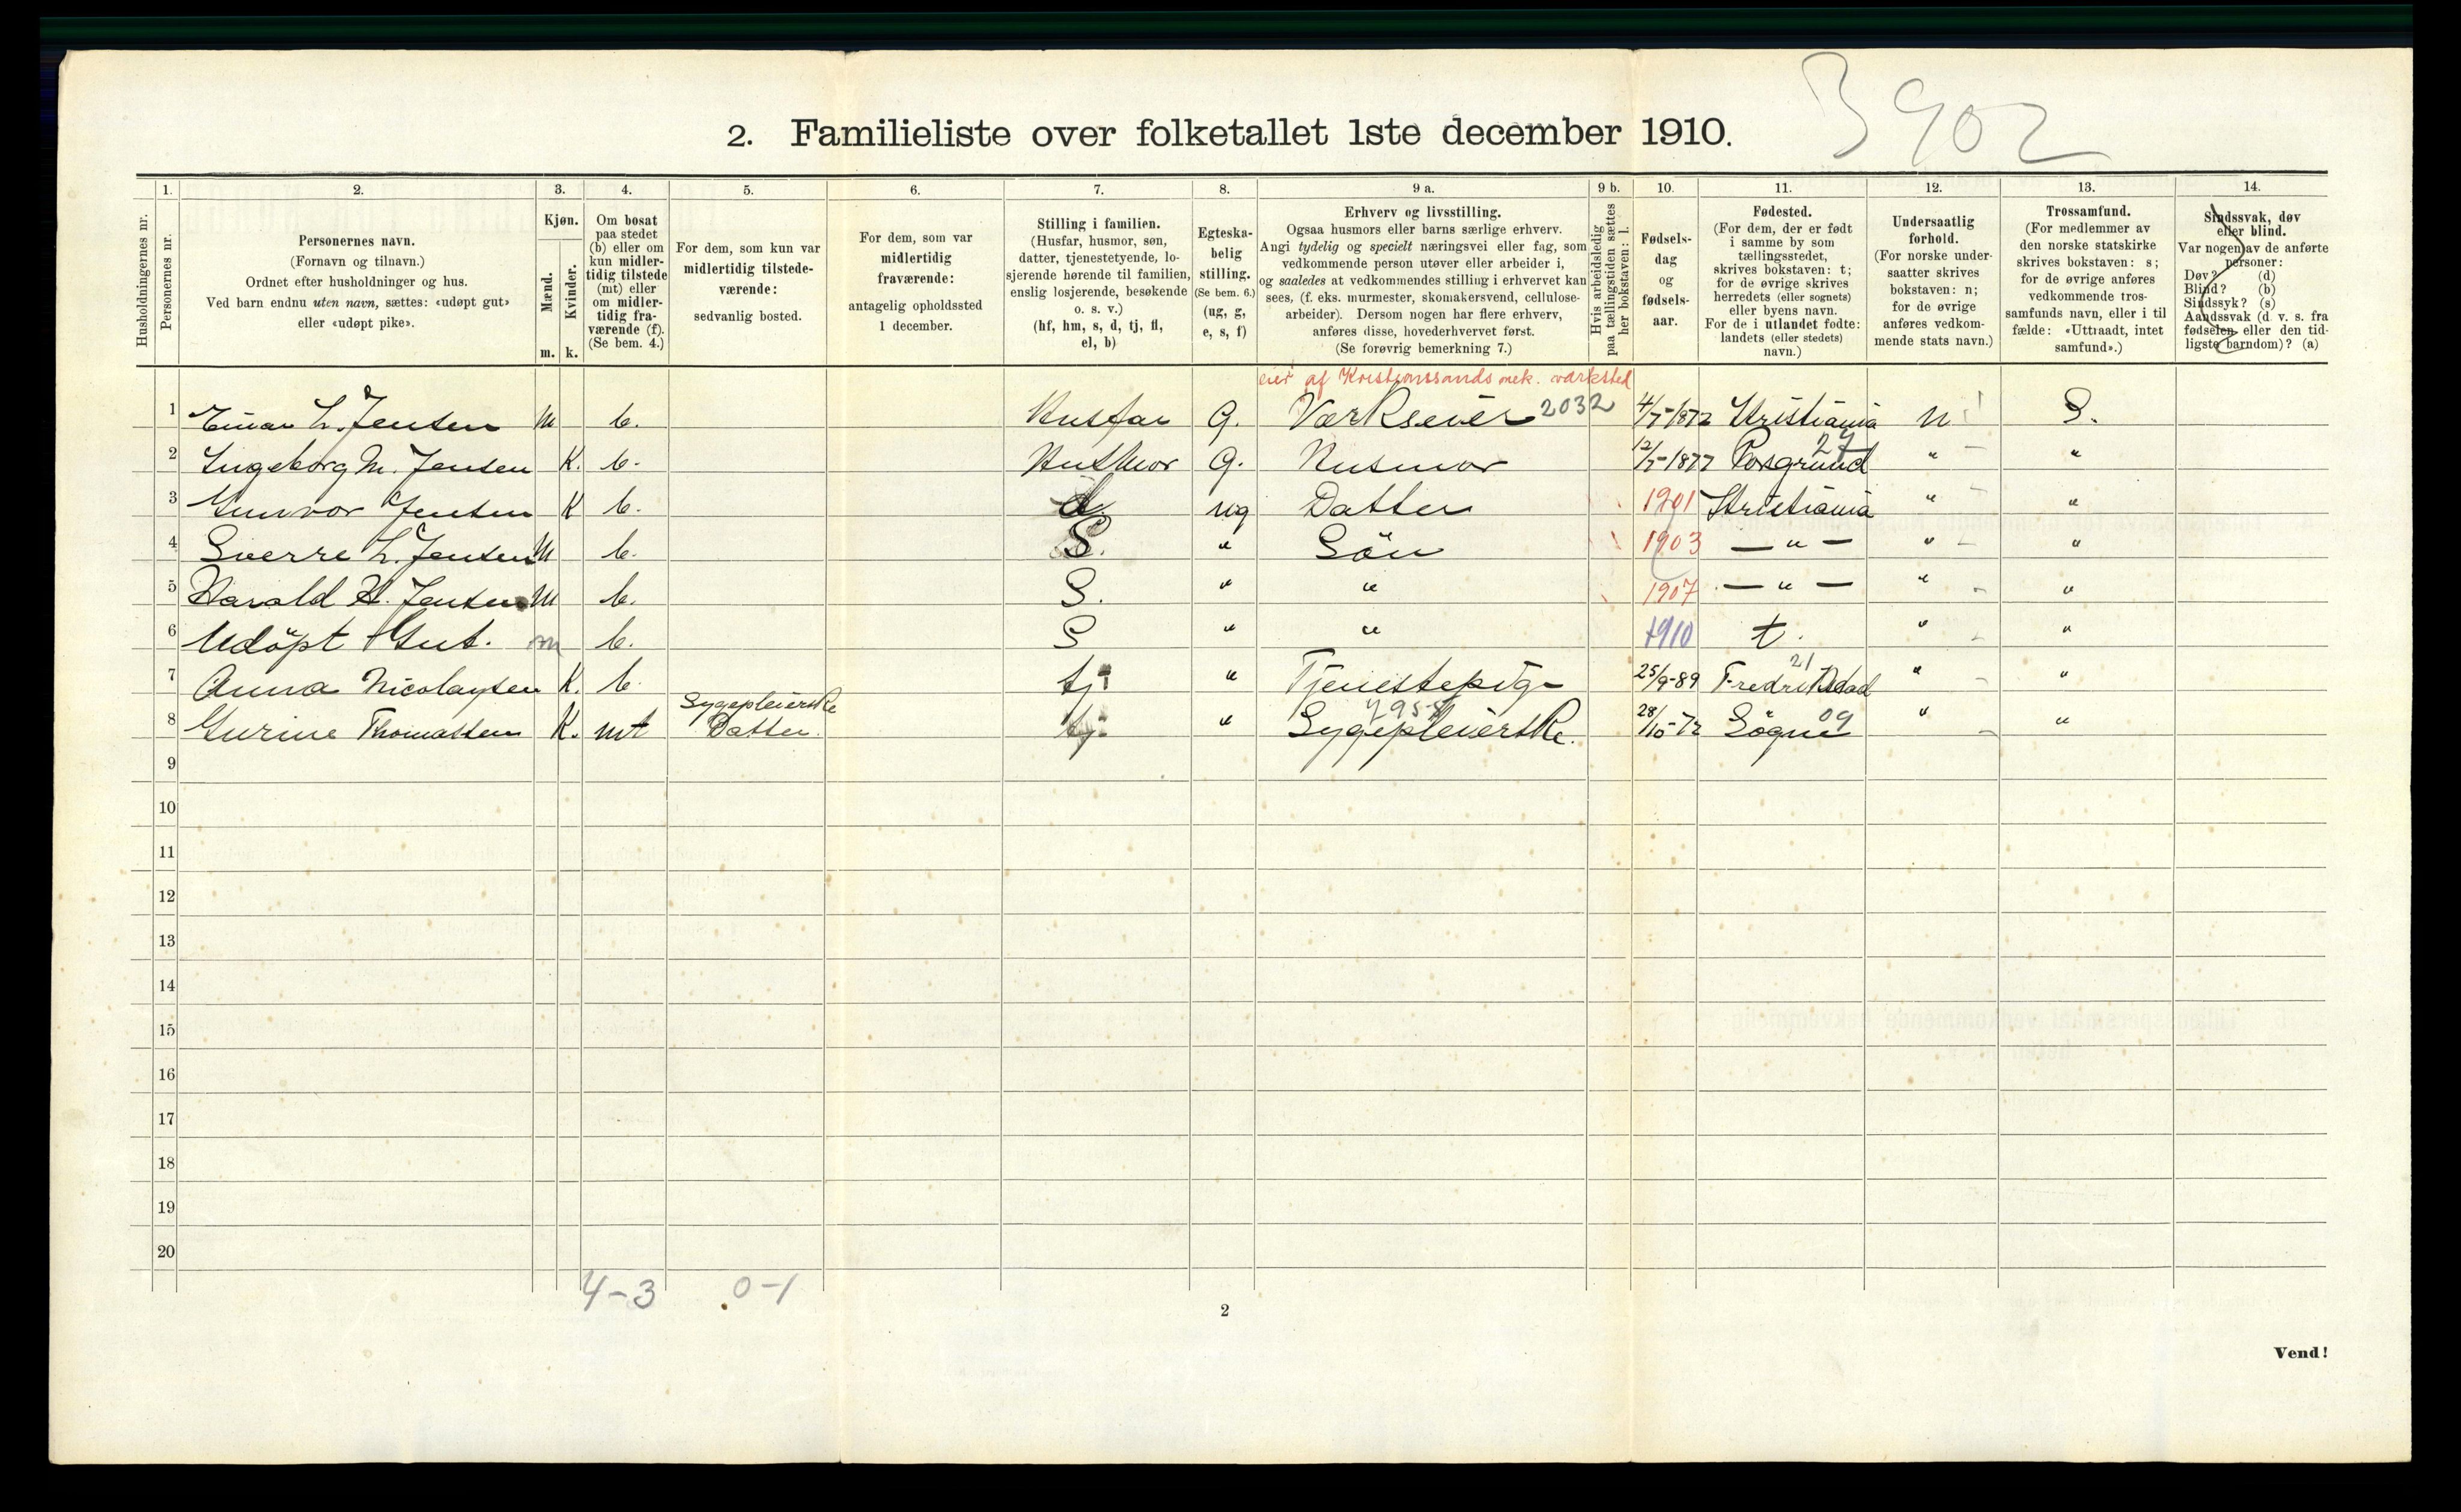 3902
2. Familieliste over folketallet 1ste december 1910.
1. 2. 3. 4. 5. 6. 7. 8. 9 a. 9 b. 10. 11. 12. 13. 14.
Husholdningernes nr.
Personernes nr.
Personernes navn.
(Fornavn og tilnavn.)
Ordnet efter husholdninger og hus.
Ved barn endnu uten navn, sættes: «udøpt gut»
eller «udøpt pike».
Kjøn.
Mænd.
Kvinder.
m. k.
Om bosat
paa stedet
(b) eller om
kun midler-
tidig tilstede
(mt) eller
om midler-
tidig fra-
værende (f).
(Se bem. 4.)
For dem, som kun var
midlertidig tilstede-
værende:
sedvanlig bosted.
For dem, som var
midlertidig
fraværende:
antagelig opholdssted
1 december.
Stilling i familien.
(Husfar, husmor, søn,
datter, tjenestetyende, lo-
sjerende hørende til familien,
enslig losjerende, besøkende
o. s. v.)
(hf, hm, s, d, tj, fl,
el, b)
Egteska-
belig
stilling.
(Se bem. 6.)
(ug, g,
e, s, f)
Erhverv og livsstilling.
Ogsaa husmors eller barns særlige erhverv.
Angi tydelig og specielt næringsvei eller fag, som
vedkommende person utøver eller arbeider i,
og saaledes at vedkommendes stilling i erhvervet kan
sees, (f. eks. murmester, skomakersvend, cellulose-
arbeider). Dersom nogen har flere erhverv,
anføres disse, hovederhvervet først.
(Se forøvrig bemerkning 7.)
Hvis arbeidsledig
paa tællingstiden sættes
her bokstaven: l.
Fødsels-
dag
og
fødsels-
aar.
Fødested.
(For dem, der er født
i samme by som
tællingsstedet,
skrives bokstaven: t;
for de øvrige skrives
herredets (eller sognets)
eller byens navn.
For de i utlandet fødte:
landets (eller stedets)
navn.)
Undersaatlig
forhold.
(For norske under-
saatter skrives
bokstaven: n;
for de øvrige
anføres vedkom-
mende stats navn.)
Trossamfund.
(For medlemmer av
den norske statskirke
skrives bokstaven: s;
for de øvrige anføres
vedkommende tros-
samfunds navn, eller i til
fælde: «Uttraadt, intet
samfund».)
Sindssvak, døv
eller blind.
Var nogen av de anførte
personer:
Døv? (d)
Blind? (b)
Sindssyk? (s)
Aandssvak (d. v. s. fra
fødselen eller den tid-
ligste barndom)? (a)
eier af Kristianssands mek. værksted
1 Einar L. Jensen M b. Husfar G. Værkseier 2032 4/5-1872 Kristiania n S.
2 Ingeborg M. Jensen K. b. Husmor G. Husmor 12/5-1877 Porsgrund 27 " "
3 Gunvor Jensen K b. d. ug Datter 1901 Kristiania " "
4 Sverre L. Jensen M b. S. " Sön 1903 — " — " "
5 Harald H. Jensen M b. S. " " 1907 — " — " "
6 Udöpt Gut. m b. S " " 1910 t. " "
7 Anna Nicolaysen K. b. tj. " Tjenestepige 25/9-89 Fredrikstad 21 " "
8 Gurine Thomassen K. mt Sygepleierske Datter. tj. " Sygepleierske. 28/10-72 Sögne 09 " "
9
10
11
12
13
14
15
16
17
18
19
20
4-3 0-1
2
Vend!